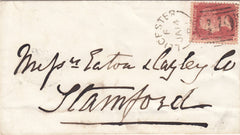 CESTER
JA 14
Mess^rs Eaton & Cayley Co
Stamford